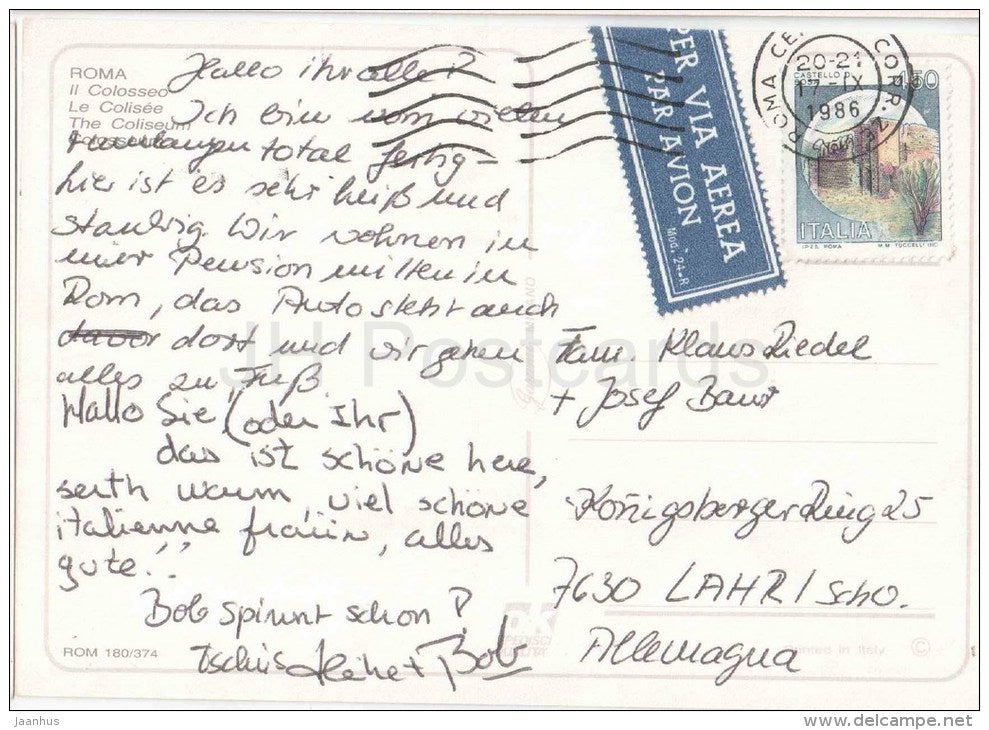 ROMA
Il Colosseo
Le Colisée
The Coliseum
Hallo ihr alle!
Ich bin vom vielen
total fertig –
hier ist es sehr heiß und
staubig. Wir wohnen in
einer Pension mitten in
Rom, das Auto steht auch
davor dort und wir gehen
alles zu Fuß.
Hallo Sie (oder Ihr)
das ist schöne here,
serth warm, viel schöne
italienne frauin, alles
gute."
Bob spinnt schon!
Tschüs Heike + Bob
ROM 180/374
PER VIA AEREA
PAR AVION
Mod. 24-R
ROMA CORR.
20-21
17-IX
1986
CASTELLO DI
450
ITALIA
I.P.Z.S. ROMA
M.M. TUCCELLI
Fam. Klaus Riedel
+ Josef Baur
Königsberger Ring 25
7630 LAHR / Scho.
Allemagna
Printed in Italy ©
JH Postcards
Jaanhus
www.delcampe.net